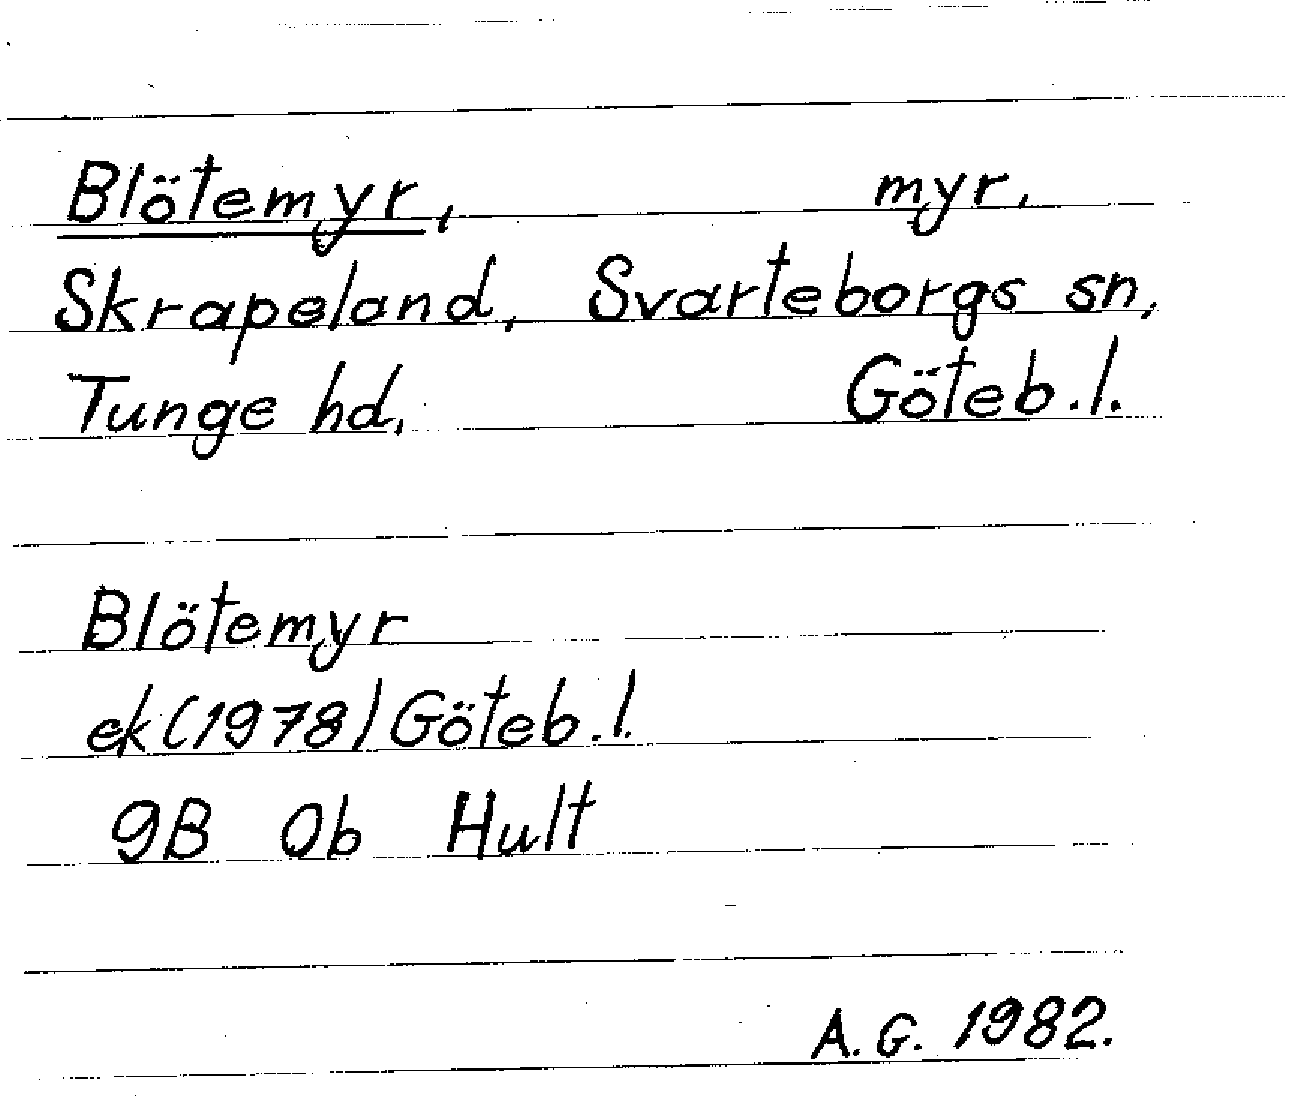 Blötemyr, myr,
Skrapeland, Svarteborgs sn,
Tunge hd, Göteb.l.
Blötemyr
ek (1978) Göteb.l.
9B 0b Hult
A.G. 1982.